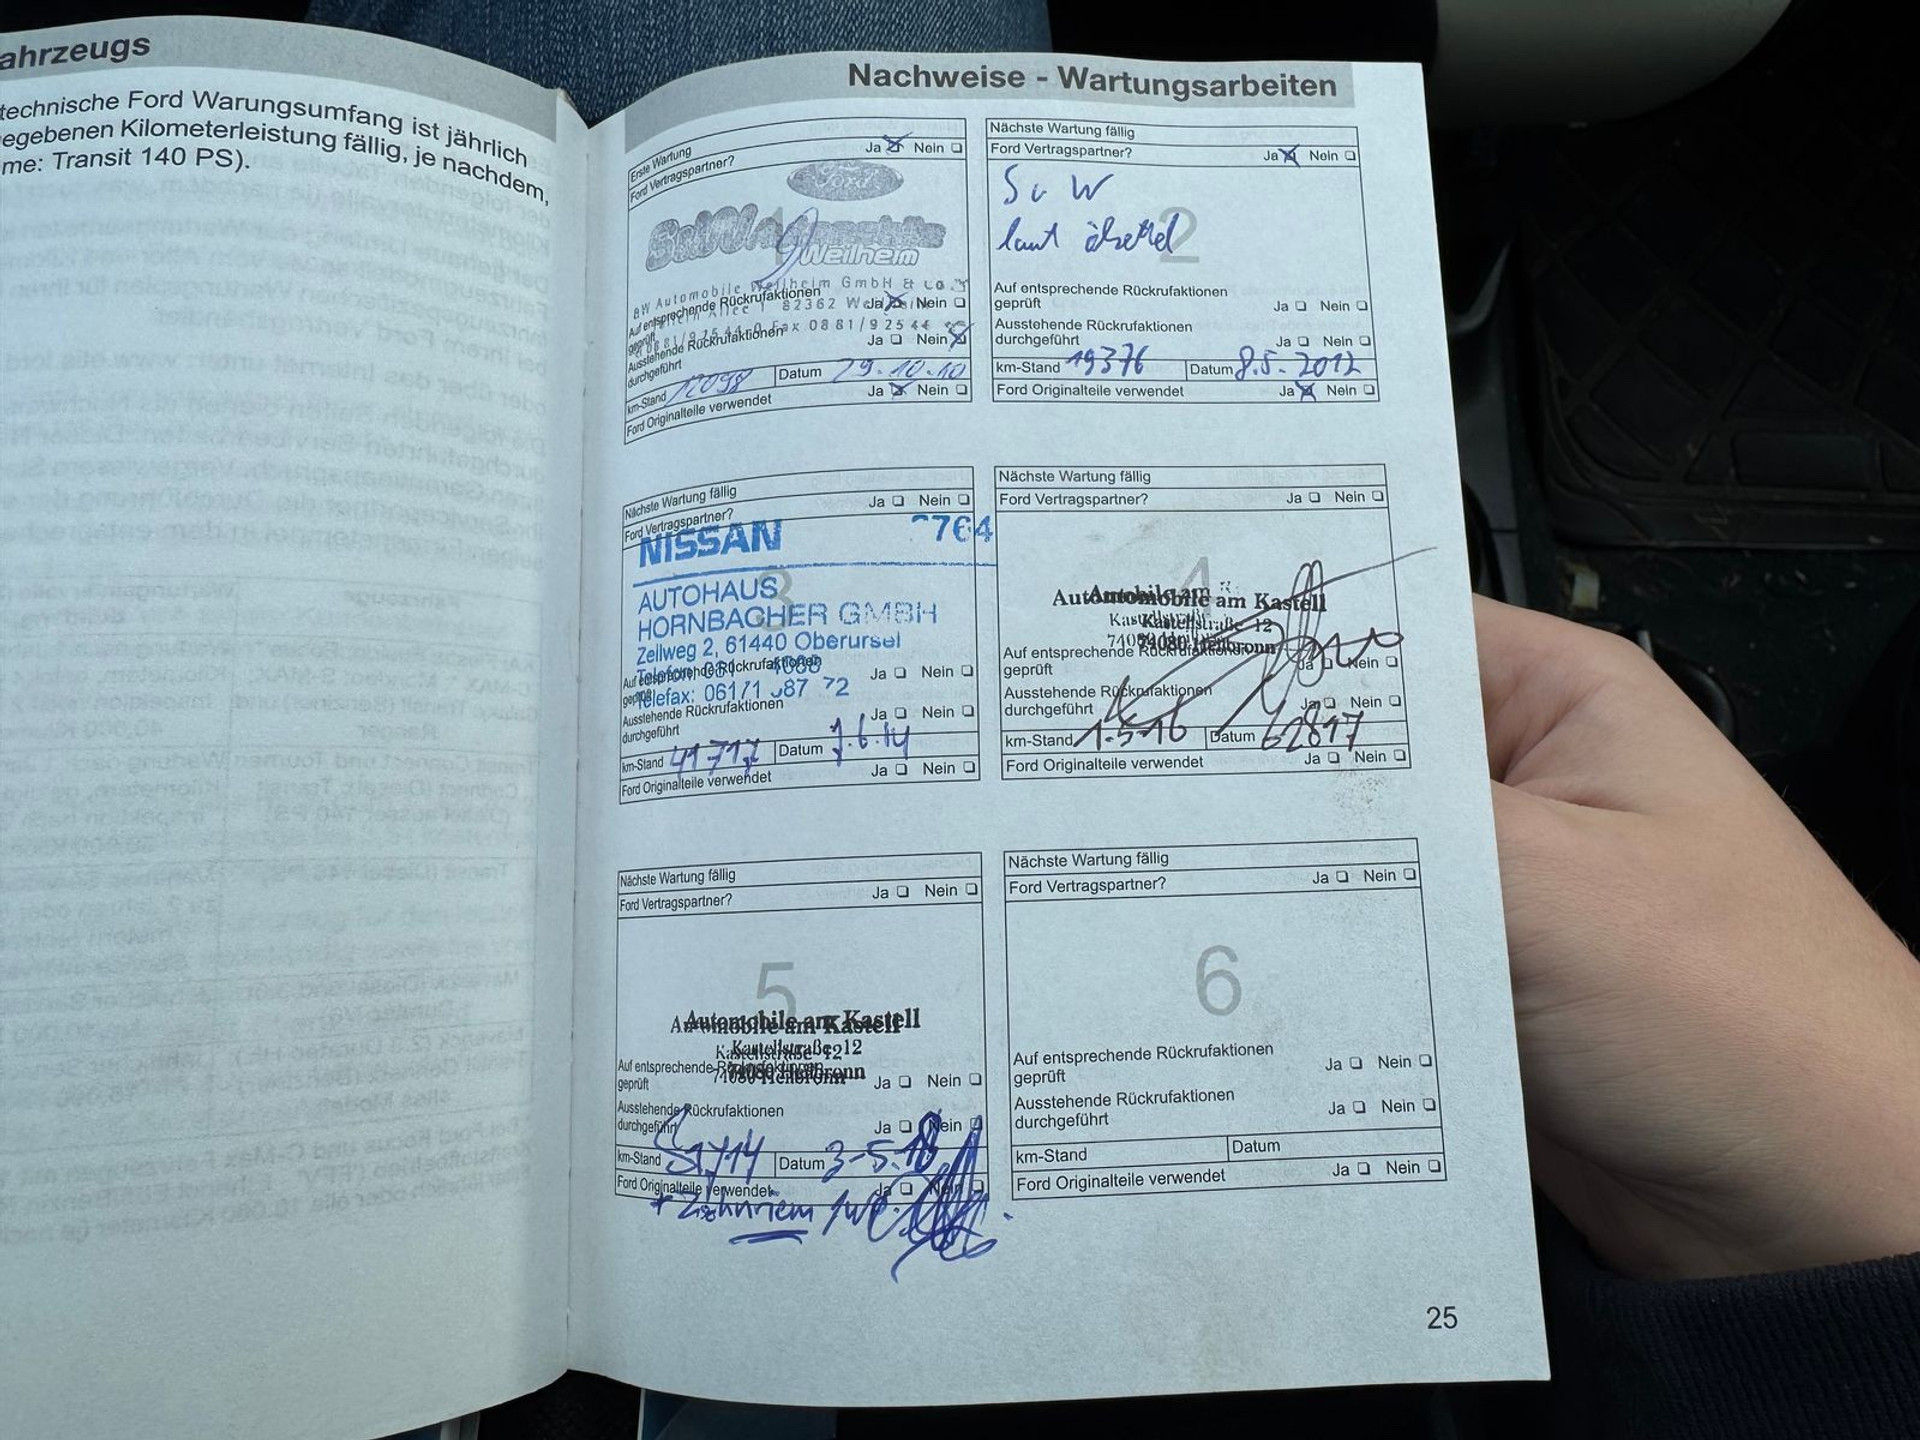 ahrzeugs
technische Ford Warungsumfang ist jährlich
egebenen Kilometerleistung fällig, je nachdem,
me: Transit 140 PS).
Nachweise - Wartungsarbeiten
Erste Wartung
Ford Vertragspartner? Ja Nein
Ford
1
Weilheim
Automobile Weilheim GmbH & Co.
82362
Auf entsprechende Rückrufaktionen
geprüft Ja Nein
Fax 0881/92544
Ausstehende Rückrufaktionen
durchgeführt Ja Nein
km-Stand 12098 Datum 29.10.10
Ford Originalteile verwendet Ja Nein
Nächste Wartung fällig
Ford Vertragspartner? Ja Nein
2
S u W
laut
Auf entsprechende Rückrufaktionen
geprüft Ja Nein
Ausstehende Rückrufaktionen
durchgeführt Ja Nein
km-Stand 19376 Datum 8.5.2012
Ford Originalteile verwendet Ja Nein
Nächste Wartung fällig
Ford Vertragspartner? Ja Nein
NISSAN 764
3
AUTOHAUS
HORNBACHER GMBH
Zellweg 2, 61440 Oberursel
Telefon:
Auf entsprechende Rückrufaktionen
geprüft Ja Nein
Telefax: 06171 87 72
Ausstehende Rückrufaktionen
durchgeführt Ja Nein
km-Stand 41717 Datum 7.6.14
Ford Originalteile verwendet Ja Nein
Nächste Wartung fällig
Ford Vertragspartner? Ja Nein
4
Automobile am Kastell
Kastellstraße 12
74080 Heilbronn
Auf entsprechende Rückrufaktionen
geprüft Ja Nein
Ausstehende Rückrufaktionen
durchgeführt Ja Nein
km-Stand 1-5-16 Datum 62817
Ford Originalteile verwendet Ja Nein
Nächste Wartung fällig
Ford Vertragspartner? Ja Nein
5
Automobile am Kastell
Kastellstraße 12
74080 Heilbronn
Auf entsprechende Rückrufaktionen
geprüft Ja Nein
Ausstehende Rückrufaktionen
durchgeführt Ja Nein
km-Stand Datum 3-5-18
Ford Originalteile verwendet Ja Nein
+ Zahnriem
Nächste Wartung fällig
Ford Vertragspartner? Ja Nein
6
Auf entsprechende Rückrufaktionen
geprüft Ja Nein
Ausstehende Rückrufaktionen
durchgeführt Ja Nein
km-Stand Datum
Ford Originalteile verwendet Ja Nein
25